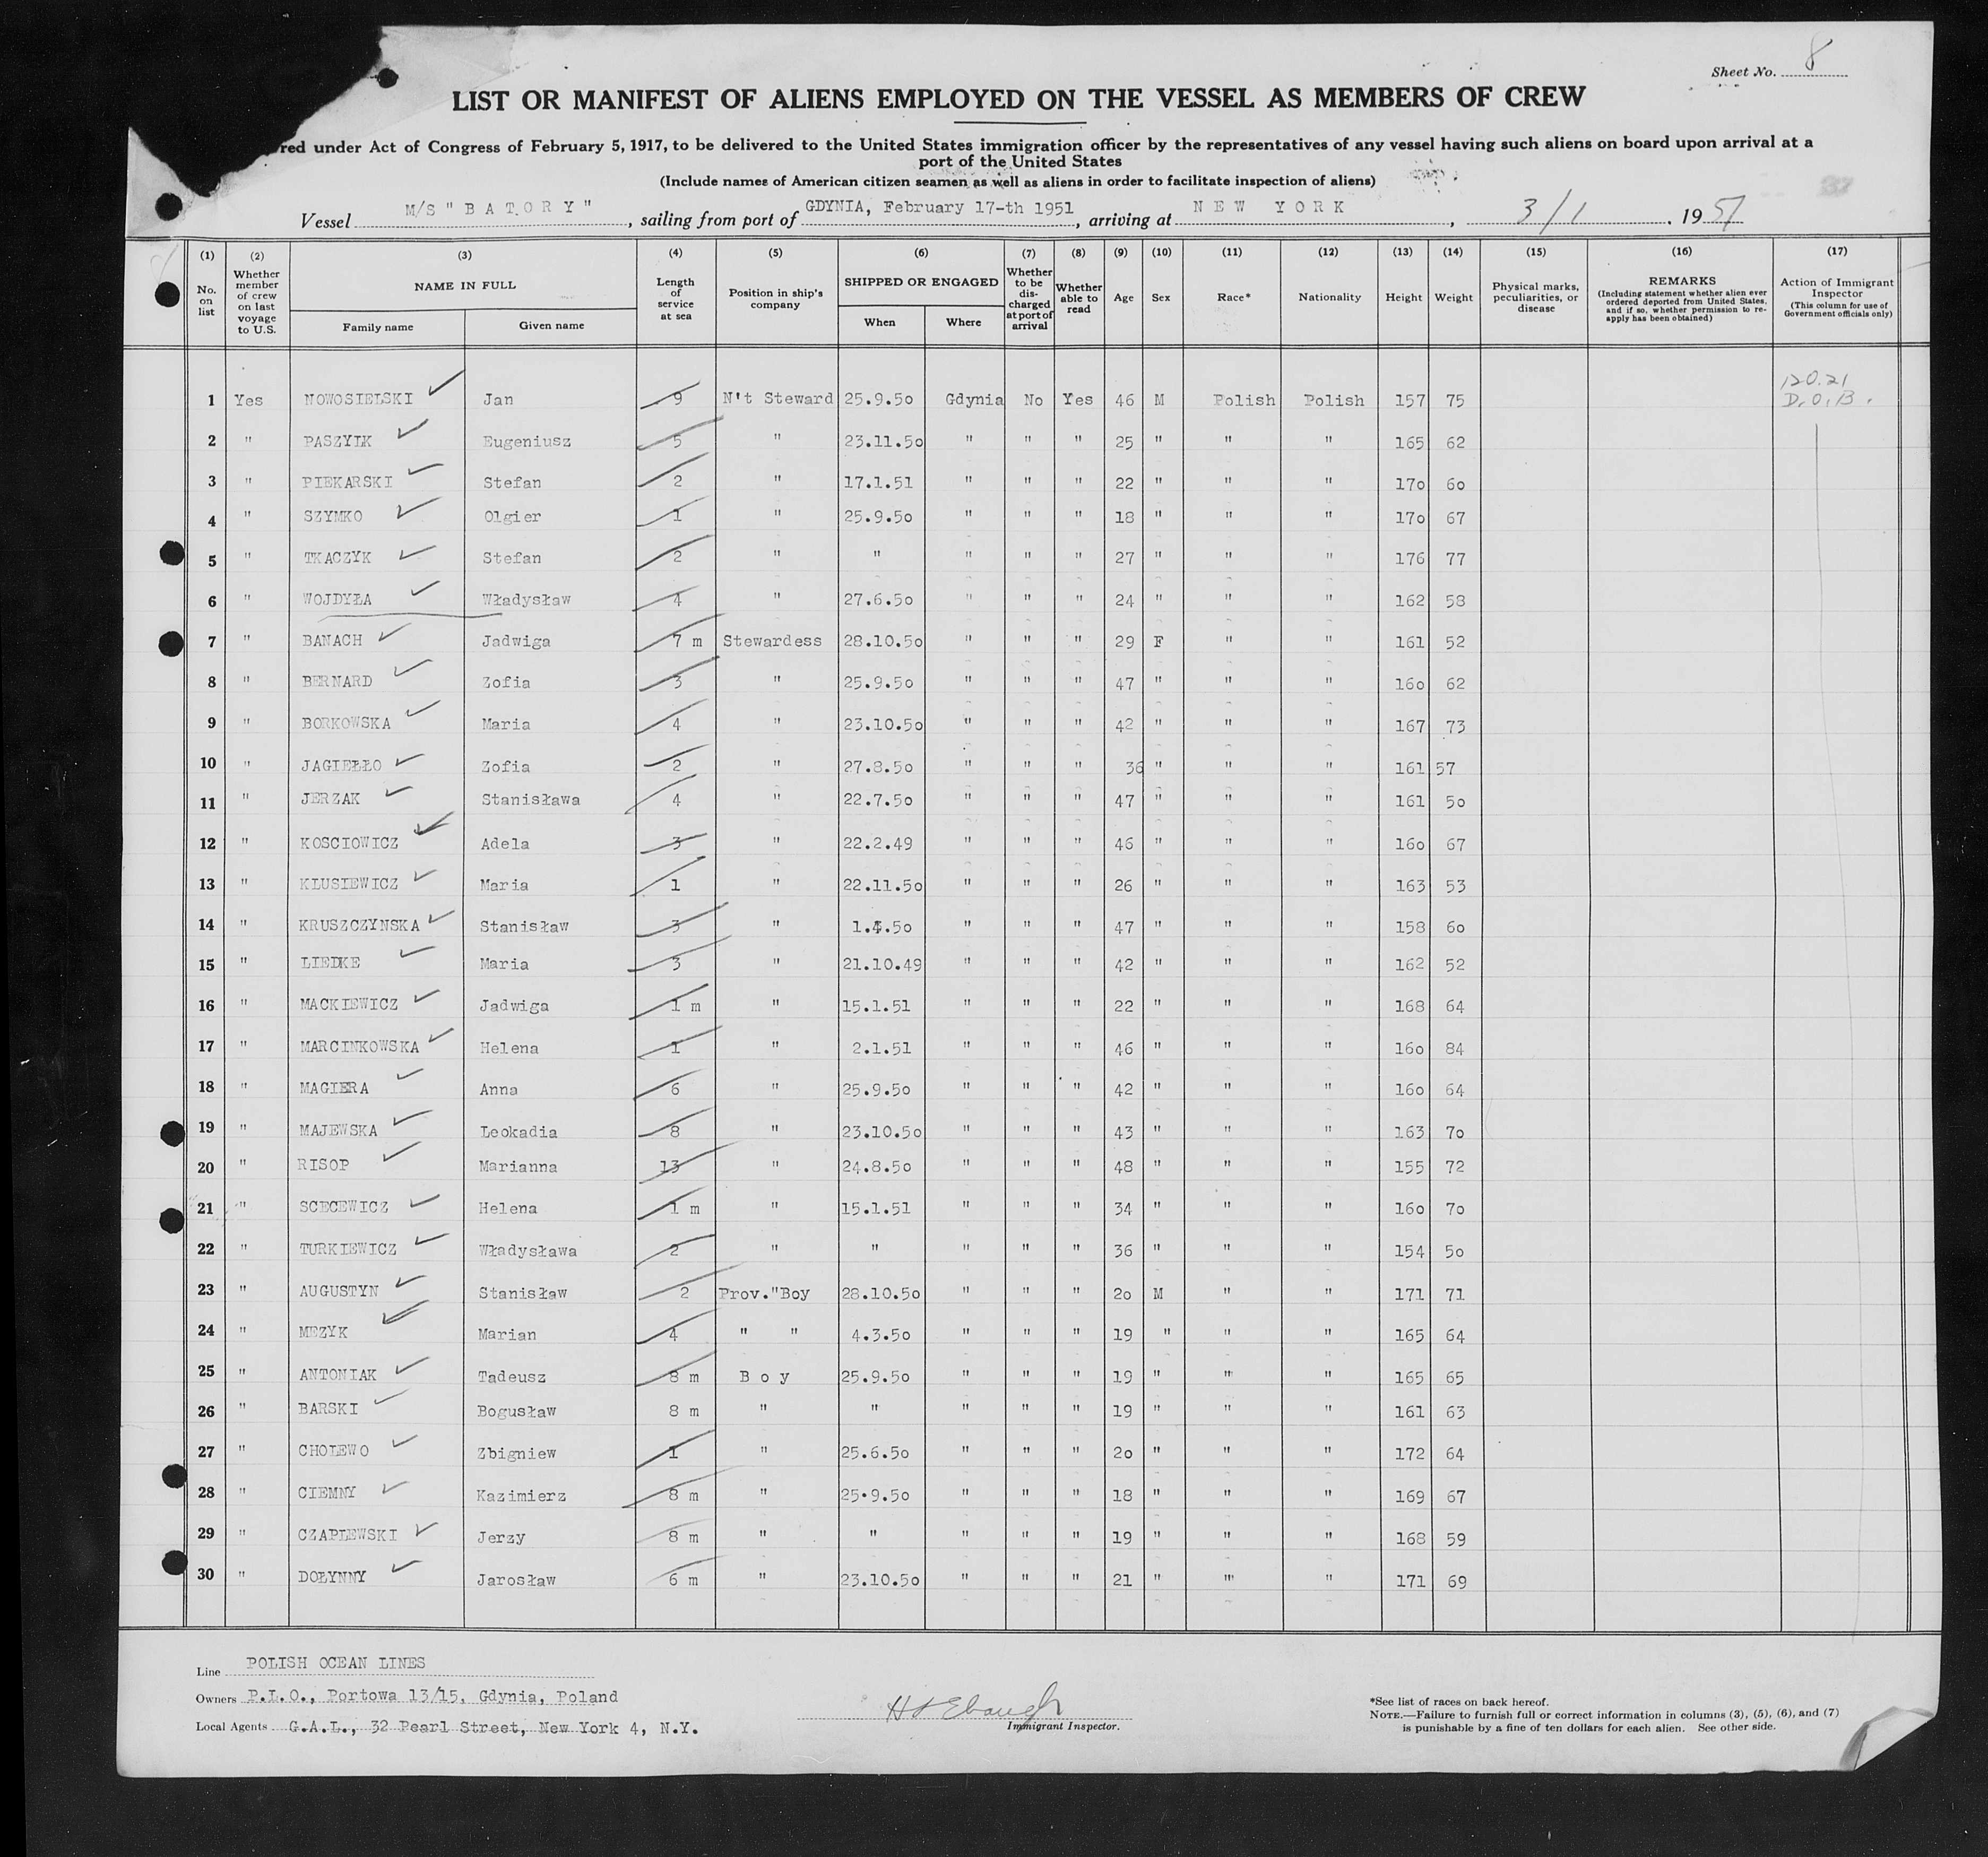 Sheet No. 8
LIST OR MANIFEST OF ALIENS EMPLOYED ON THE VESSEL AS MEMBERS OF CREW
red under Act of Congress of February 5, 1917, to be delivered to the United States immigration officer by the representatives of any vessel having such aliens on board upon arrival at a
port of the United States
(Include names of American citizen seamen as well as aliens in order to facilitate inspection of aliens)
Vessel M/S "BATORY", sailing from port of GDYNIA, February 17-th 1951, arriving at NEW YORK, 3/1, 1951
(1) (2) (3) (4) (5) (6) (7) (8) (9) (10) (11) (12) (13) (14) (15) (16) (17)
No. on list | Whether member of crew on last voyage to U.S. | NAME IN FULL | Length of service at sea | Position in ship's company | SHIPPED OR ENGAGED | Whether to be discharged at port of arrival | Whether able to read | Age | Sex | Race* | Nationality | Height | Weight | Physical marks, peculiarities, or disease | REMARKS (Including statement whether alien ever ordered deported from United States, and if so, whether permission to re-apply has been obtained) | Action of Immigrant Inspector (This column for use of Government officials only)
Family name | Given name | When | Where
1 Yes NOWOSIELSKI Jan 9 N't Steward 25.9.50 Gdynia No Yes 46 M Polish Polish 157 75 120.21 D.O.B.
2 " PASZYIK Eugeniusz 5 " 23.11.50 " " " 25 " " " 165 62
3 " PIEKARSKI Stefan 2 " 17.1.51 " " " 22 " " " 170 60
4 " SZYMKO Olgier 1 " 25.9.50 " " " 18 " " " 170 67
5 " TKACZYK Stefan 2 " " " " " 27 " " " 176 77
6 " WOJDYŁA Władysław 4 " 27.6.50 " " " 24 " " " 162 58
7 " BANACH Jadwiga 7 m Stewardess 28.10.50 " " " 29 F " " 161 52
8 " BERNARD Zofia 3 " 25.9.50 " " " 47 " " " 160 62
9 " BORKOWSKA Maria 4 " 23.10.50 " " " 42 " " " 167 73
10 " JAGIEŁŁO Zofia 2 " 27.8.50 " " " 36 " " " 161 57
11 " JERZAK Stanisława 4 " 22.7.50 " " " 47 " " " 161 50
12 " KOSCIOWICZ Adela 3 " 22.2.49 " " " 46 " " " 160 67
13 " KLUSIEWICZ Maria 1 " 22.11.50 " " " 26 " " " 163 53
14 " KRUSZCZYNSKA Stanisław 3 " 1.4.50 " " " 47 " " " 158 60
15 " LIEDKE Maria 3 " 21.10.49 " " " 42 " " " 162 52
16 " MACKIEWICZ Jadwiga 1 m " 15.1.51 " " " 22 " " " 168 64
17 " MARCINKOWSKA Helena 1 " 2.1.51 " " " 46 " " " 160 84
18 " MAGIERA Anna 6 " 25.9.50 " " " 42 " " " 160 64
19 " MAJEWSKA Leokadia 8 " 23.10.50 " " " 43 " " " 163 70
20 " RISOP Marianna 13 " 24.8.50 " " " 48 " " " 155 72
21 " SCECEWICZ Helena 1 m " 15.1.51 " " " 34 " " " 160 70
22 " TURKIEWICZ Władysława 2 " " " " " 36 " " " 154 50
23 " AUGUSTYN Stanisław 2 Prov."Boy 28.10.50 " " " 20 M " " 171 71
24 " MEZYK Marian 4 " " 4.3.50 " " " 19 " " " 165 64
25 " ANTONIAK Tadeusz 8 m Boy 25.9.50 " " " 19 " " " 165 65
26 " BARSKI Bogusław 8 m " " " " " 19 " " " 161 63
27 " CHOLEWO Zbigniew 1 " 25.6.50 " " " 20 " " " 172 64
28 " CIEMNY Kazimierz 8 m " 25.9.50 " " " 18 " " " 169 67
29 " CZAPLEWSKI Jerzy 8 m " " " " " 19 " " " 168 59
30 " DOŁYNNY Jarosław 6 m " 23.10.50 " " " 21 " " " 171 69
Line POLISH OCEAN LINES
Owners P.L.O., Portowa 13/15, Gdynia, Poland
Local Agents G.A.L., 32 Pearl Street, New York 4, N.Y.
Immigrant Inspector.
*See list of races on back hereof.
NOTE.—Failure to furnish full or correct information in columns (3), (5), (6), and (7)
is punishable by a fine of ten dollars for each alien. See other side.